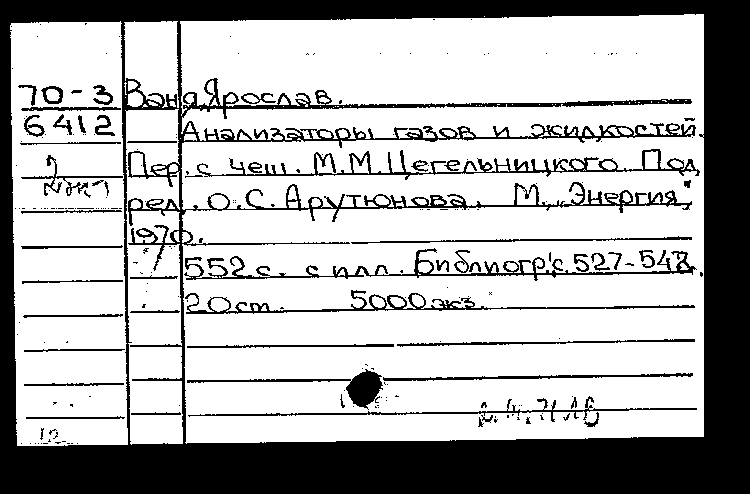 70-3 Вана, Ярослав.
6412 Анализаторы газов и жидкостей.
Пер. с чеш. М.М. Цегельницкого. Под
ред. О.С. Арутюнова. М., "Энергия",
1970.
552 с. с илл. Библиогр: с. 527-548.
20 cm. 5000 экз.
12